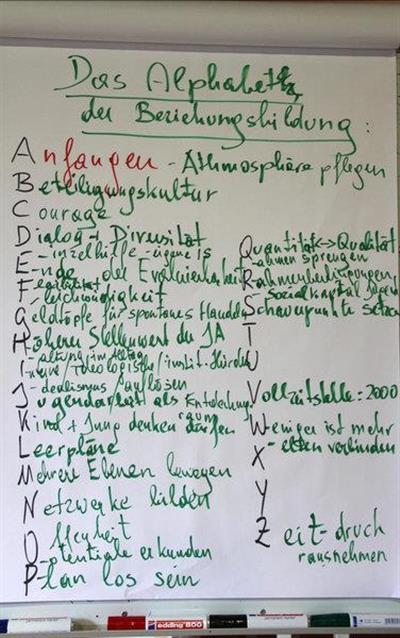 Das Alphabet
der Beziehungsbildung:
Anfangen - Athmosphäre pflegen
Beteiligungskultur
Courage
Dialog + Diversität
E-inzelhilfe - eigene
E-nde der
F-leichwendigkeit
Geldtöpfe für spontanes Handeln
Hoher Stellenwert der JA
- altung im Alltag
I-nterne / Ideologische / instit. Hürden
- dealismus
Jugendarbeit als
Kind + Jung denken dürfen
Leerpläne
Mehrere Ebenen bewegen
Netzwerke bilden
Offenheit
- otentiale erkunden
Plan los sein
Quantität <-> Qualität
- ahmen sprengen
Rahmenbedingungen
- Sozialkapital
Schwerpunkte setzen
T
U
Vollzeitstelle: 2000
Weniger ist mehr
- elten verbinden
X
Y
Zeit-druck
rausnehmen
edding 800